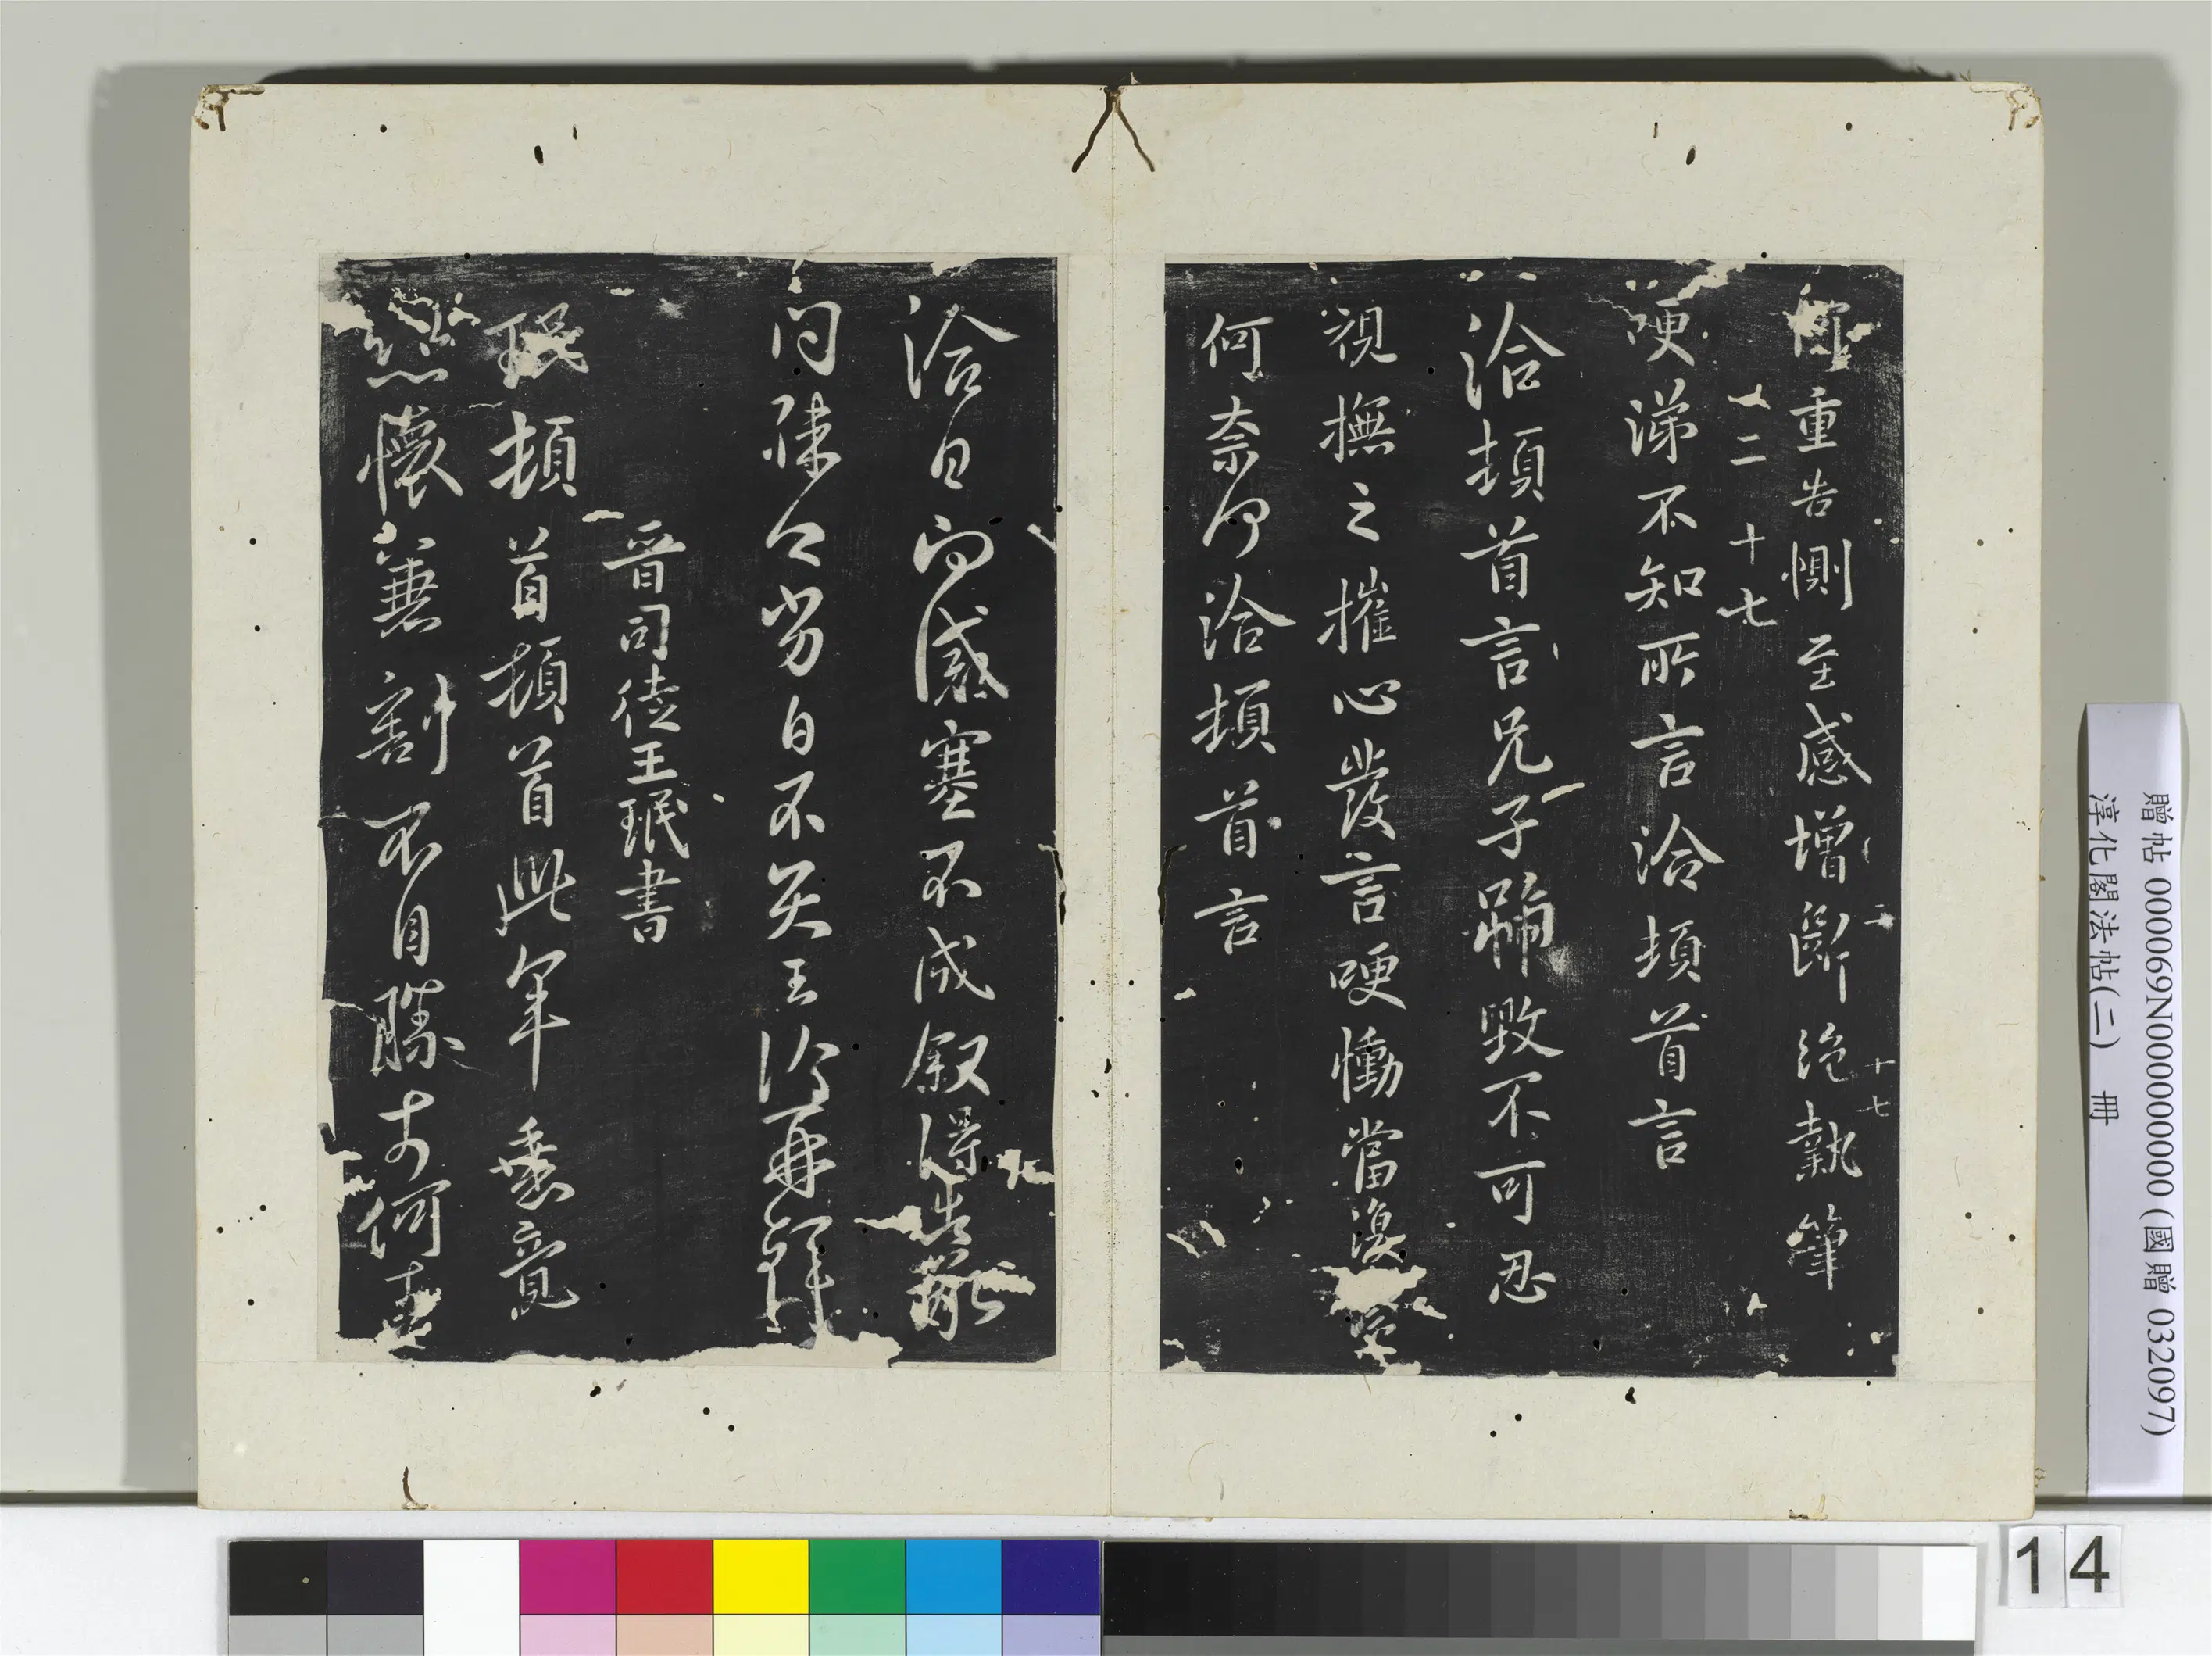 重告惻至感增斷絕執筆
二 十七
二 十七
哽涕不知所言洽頓首言
洽頓首言兄子號毀不可忍
視撫之摧心發言哽慟當復
何奈何洽頓首言
洽白 感塞不成叙得告
問 勞白不具王洽再拜
晉司徒王珉書
珉頓首頓首此年垂竟
懷兼割不自勝奈何
贈帖 000069N000000000 (國贈 032097)
淳化閣法帖(二) 冊
14